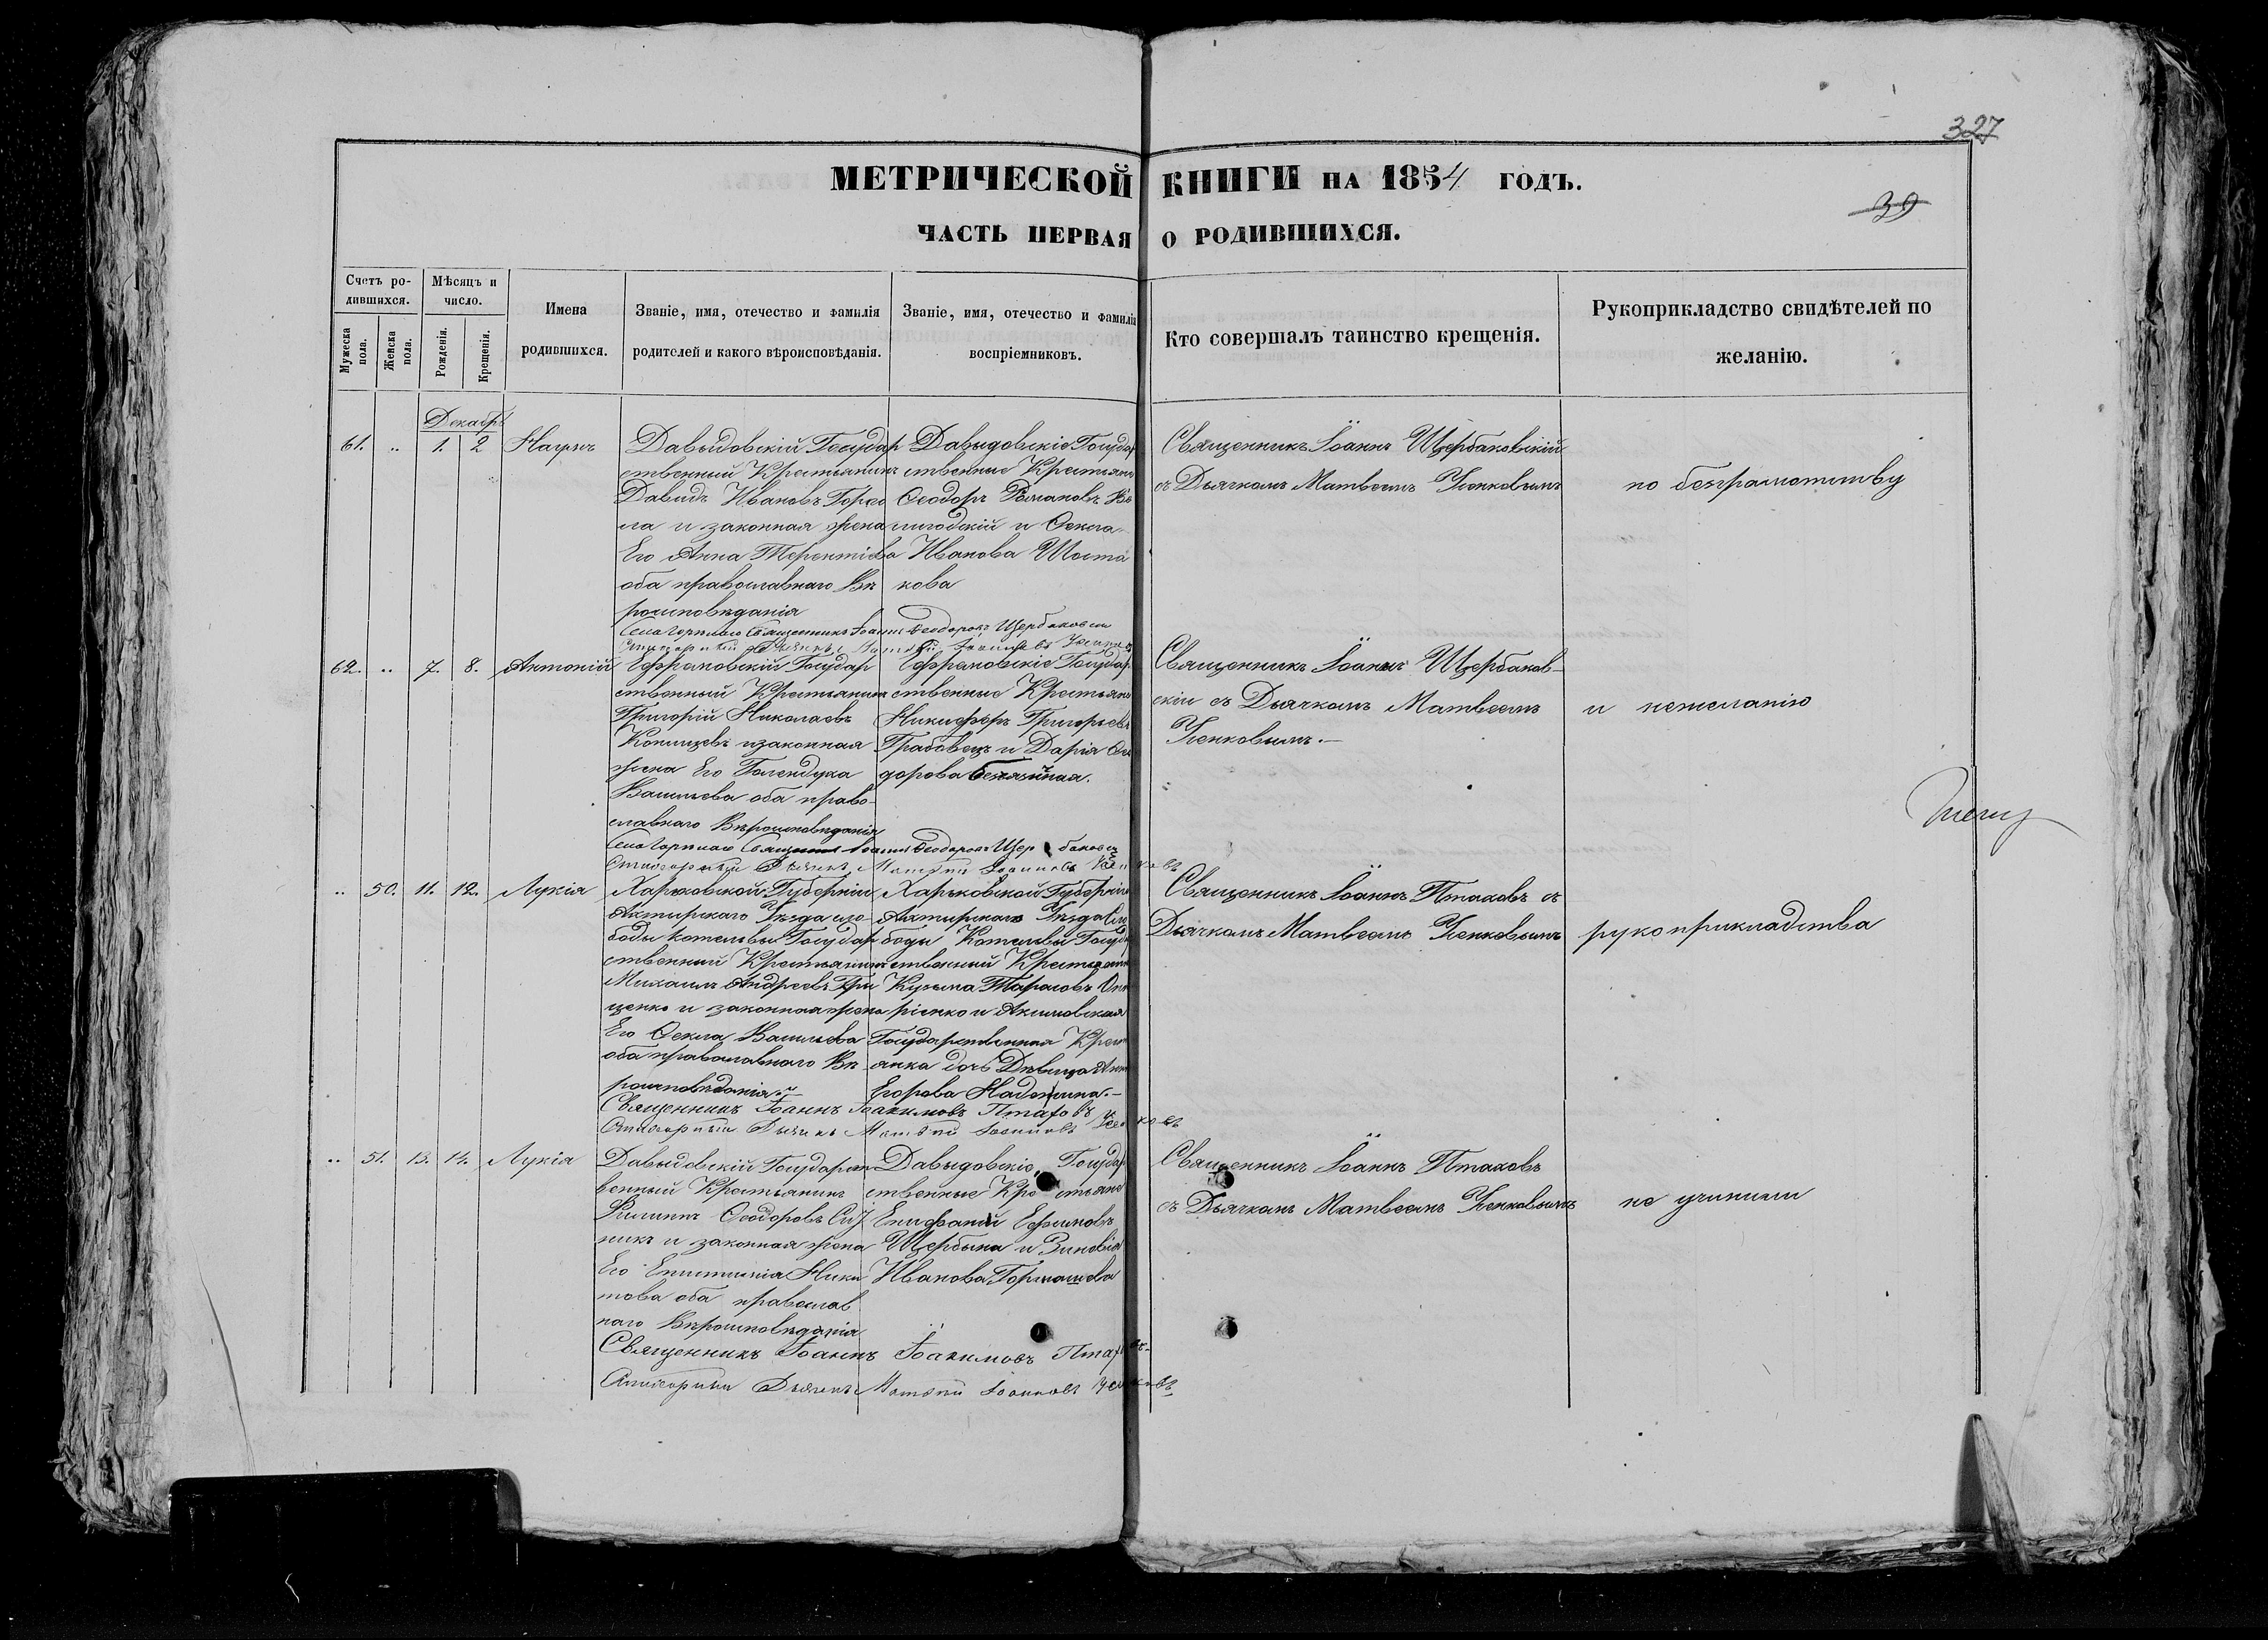 327
МЕТРИЧЕСКОЙ КНИГИ НА 1854 ГОДЪ.
39
ЧАСТЬ ПЕРВАЯ О РОДИВШИХСЯ.
Счетъ ро-
дившихся.
Мужеска пола.
Женска пола.
Мѣсяцъ и
число.
Рожденія.
Крещенія.
Имена
родившихся.
Званіе, имя, отечество и фамилія
родителей и какого вѣроисповѣданія.
Званіе, имя, отечество и фамилія
воспріемниковъ.
Кто совершалъ таинство крещенія.
Рукоприкладство свидѣтелей по
желанію.
Декабрь
61. .. 1. 2 Наумъ
Давыдовскій Государ
ственный Крестьянинъ
Давидъ Ивановъ
ла и законная жена
Его Анна Терентіева
оба православнаго Вѣ
роисповѣданія
Давыдовскіе Государ
ственные Крестьяне
Ѳеодоръ Романовъ
и Ѳекла
Иванова Шоста
кова
Священникъ Іоаннъ Щербаковскій
съ Дьячкомъ Матвеемъ Ченковымъ
по безграмотству
Священникъ Іоаннъ Ѳеодоровъ
62. .. 7. 8. Антоній
Ефремовскій Государ
ственный Крестьянинъ
Григорій Николаевъ
и законная
жена Его Голендуха
Васильева оба право-
славнаго Вѣроисповѣданія
Ефремовскіе Государ
ственные Крестьяне
Никифоръ Григорьевъ
Грабовецъ и Дарія Ѳео
дорова
Священникъ Іоаннъ Щербаков-
скій съ Дьячкомъ Матвеемъ
Ченковымъ.
и нежеланію
Іоаннъ Ѳеодоровъ
.. 50. 11. 12. Лукія
Харьковской Губерніи
Ахтирскаго Уѣзда сло-
боды Котельвы Государ
ственный Крестьянинъ
Михаилъ Андреевъ Гри
ценко и законная жена
Его Ѳекла Васильева
оба православнаго Вѣ
роисповѣданія
Харьковской Губерніи
Ахтирскаго Уѣзда Сло
боды Котельвы Госуда
ственный Крестьянинъ
Кузьма Тарасовъ
рієнко и Акимовская
Государственная Крест
янка дочь Дѣвица
Егорова
Священникъ Іоаннъ Птаховъ съ
Дьячкомъ Матвеемъ Ченковымъ
рукоприкладства
Священникъ Іоаннъ Іоакимовъ Птаховъ
Дьячекъ Матѳій Іоанновъ Ченковъ
.. 51. 13. 14. Лукія
Давыдовскій Государст
венный Крестьянинъ
Филиппъ Ѳеодоровъ
никъ и законная жена
Его Епистимія Ники
това оба православ
наго Вѣроисповѣданія
Давыдовскіе Государ
ственные Крестьяне
Епифаній Ефимовъ
Щербина и Зиновія
Иванова
Священникъ Іоаннъ Птаховъ
съ Дьячкомъ Матвеемъ Ченковымъ
не учинили
Священникъ Іоаннъ Іоакимовъ Птаховъ.
Дьячекъ Матѳій Іоанновъ Ченковъ